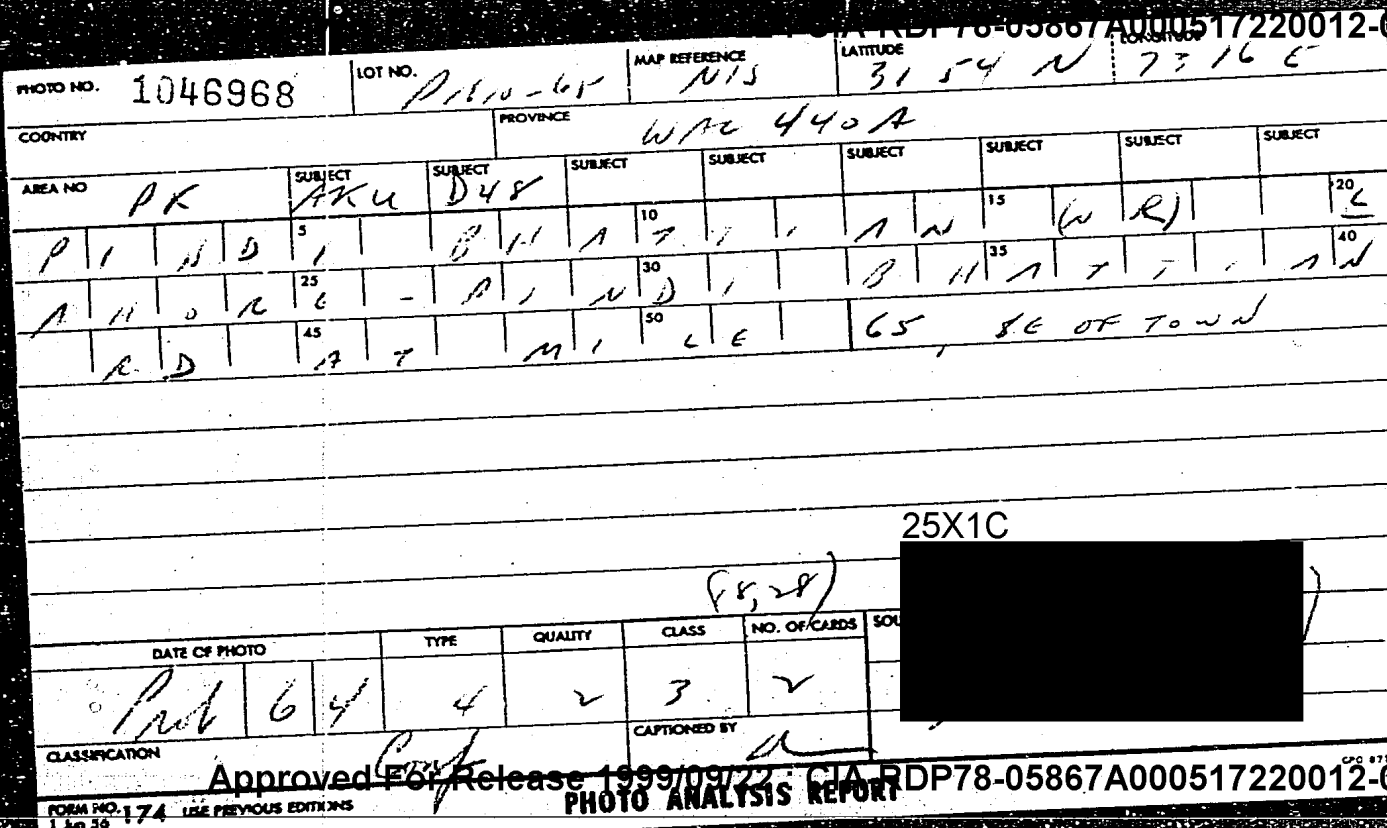 CIA-RDP78-05867A000517220012-0
PHOTO NO. 1046968 LOT NO. MAP REFERENCE NIS LATITUDE 31 54 N LONGITUDE 73 16 E
COUNTRY PROVINCE WAC 440A
AREA NO PK SUBJECT AKU SUBJECT D48 SUBJECT SUBJECT SUBJECT SUBJECT SUBJECT SUBJECT
5 10 15 20
PINDI BHATTIAN (WR) L
25 30 35 40
AHORE - PINDI BHATTIAN
45 50
RD AT MILE 65, SE OF TOWN
25X1C
(58,28)
DATE OF PHOTO TYPE QUALITY CLASS NO. OF CARDS SOU
Prob 64 4 2 3 2
CLASSIFICATION Conf CAPTIONED BY
Approved For Release 1999/09/22 : CIA-RDP78-05867A000517220012-0
FORM NO. 174 USE PREVIOUS EDITIONS PHOTO ANALYSIS REPORT
1 Jun 56